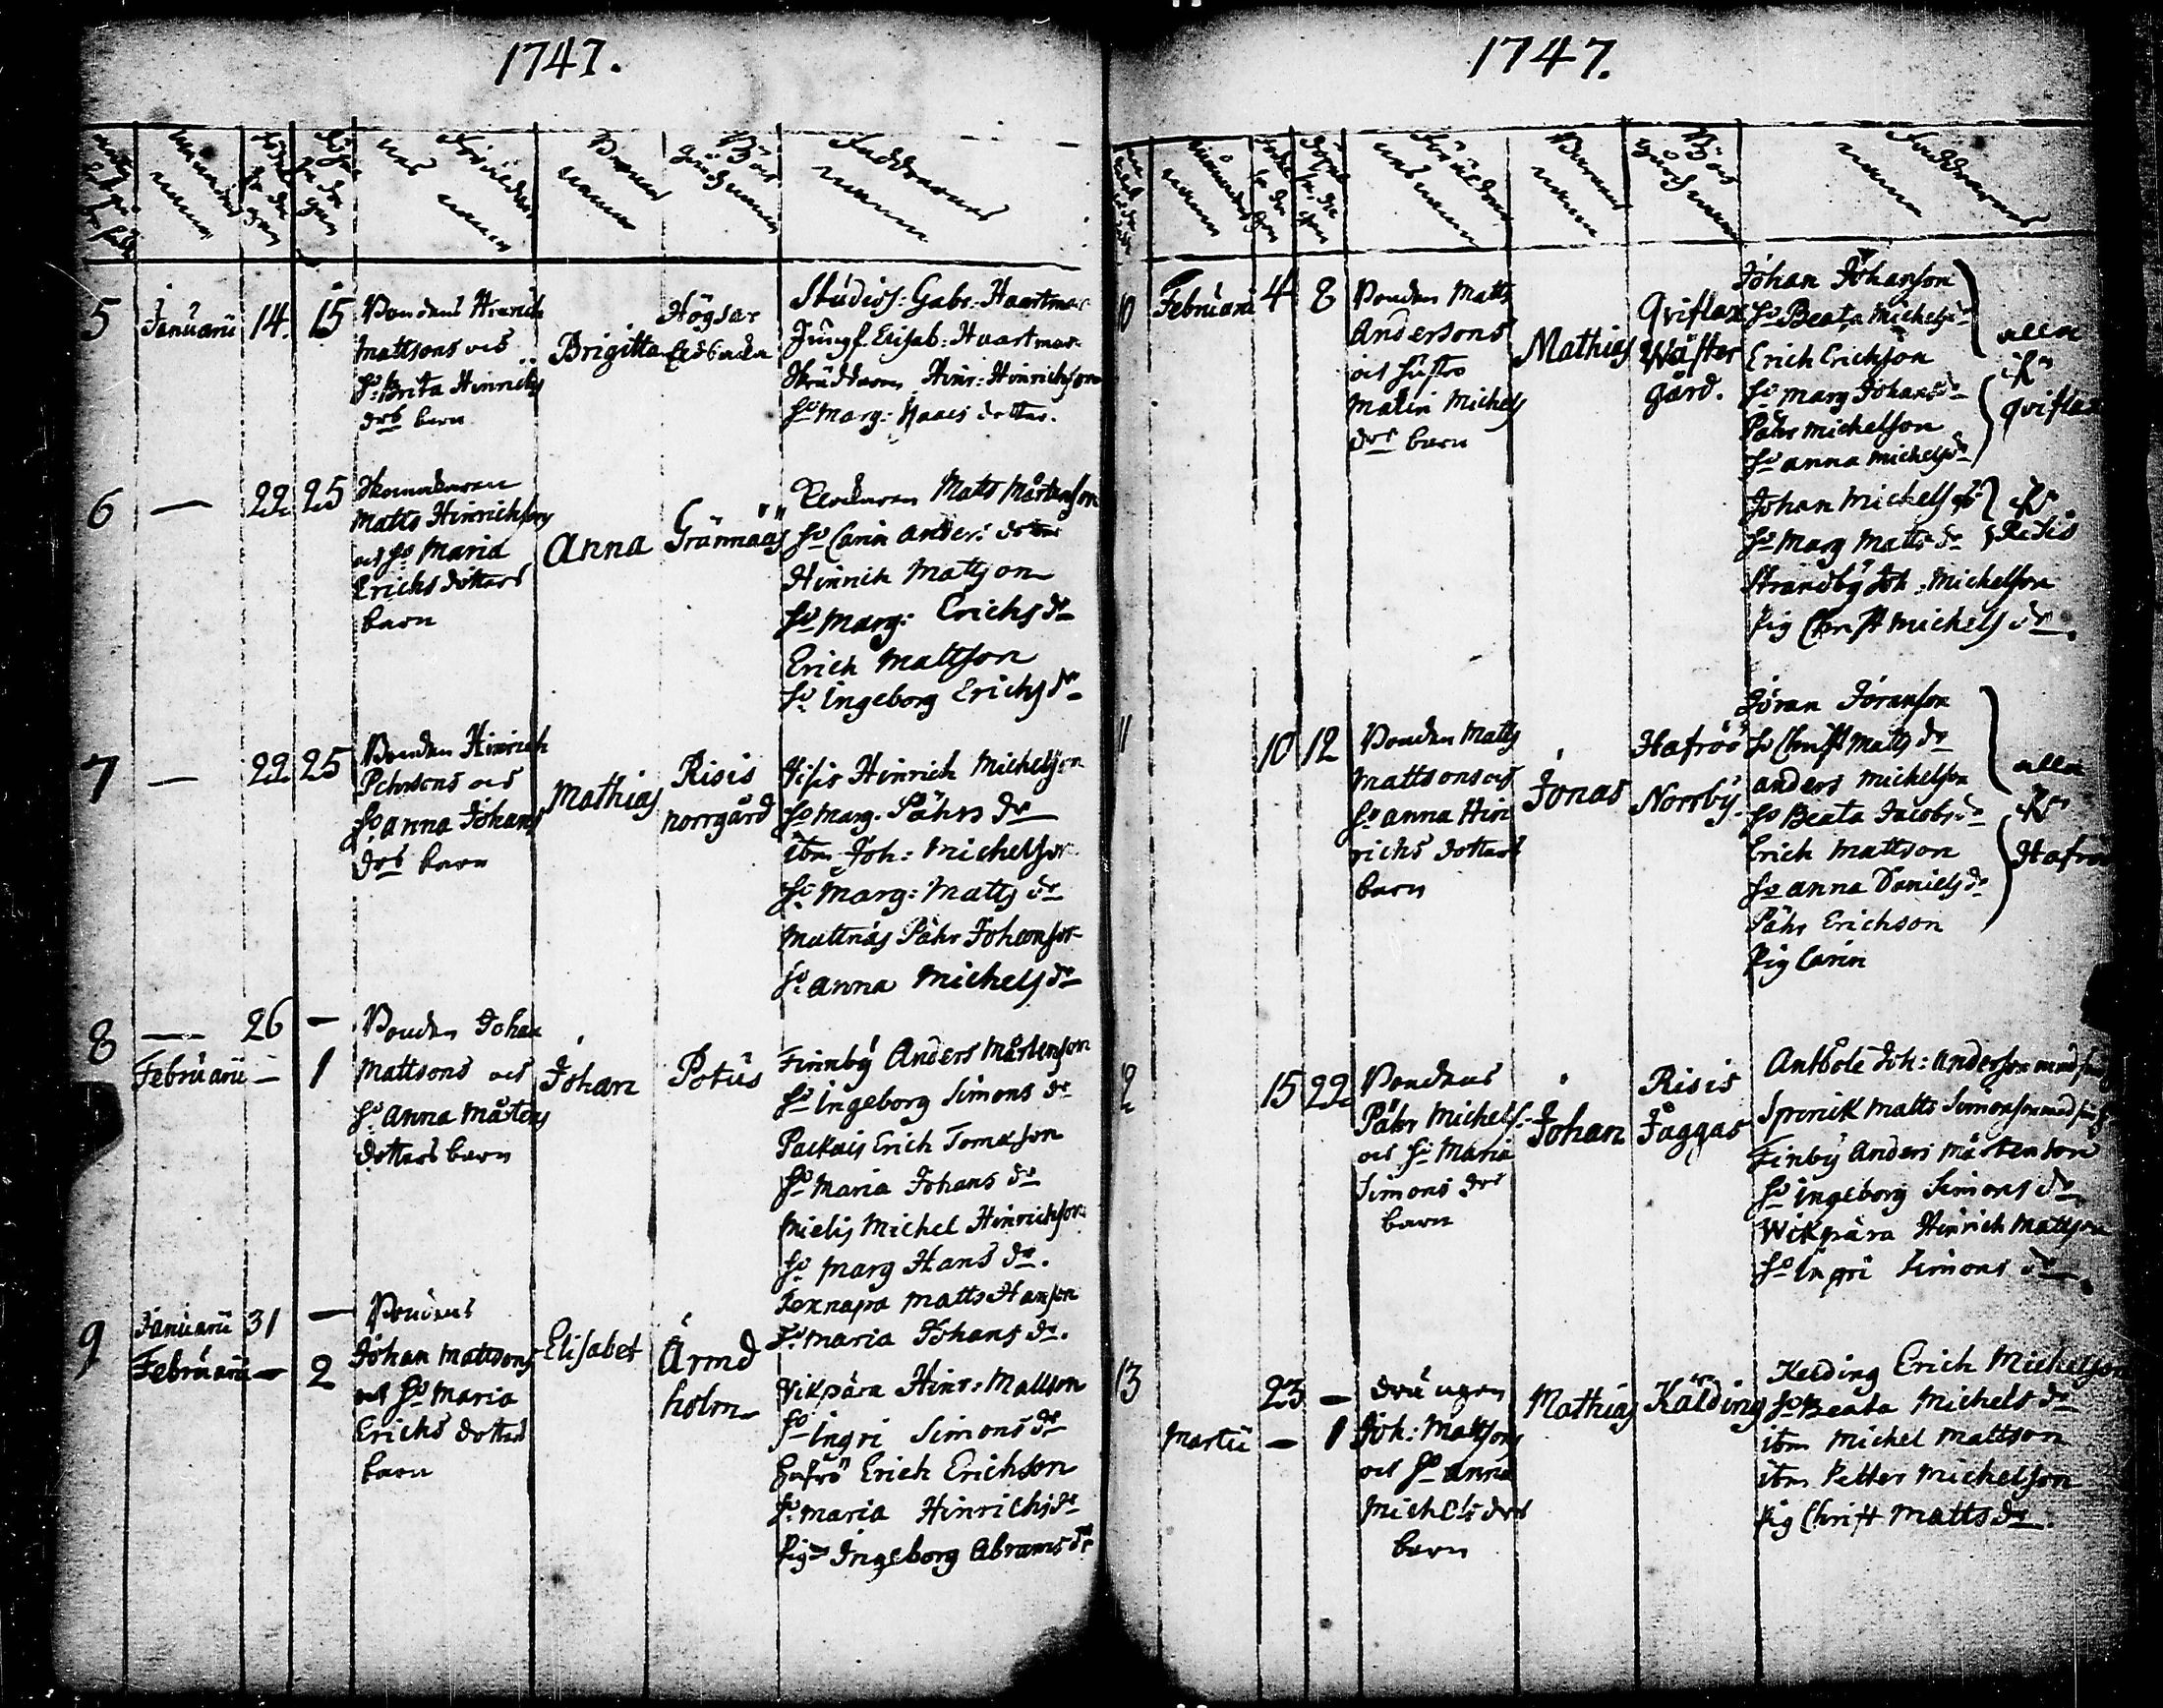 1747.
Föräldrar
nas
namn
Barnens
namn
Byar
gårdz namn
Faddrarnas
namn
5 Januarii 14. 15
Bondens Hinrich
Mattsons och
H: Brita Hinrichs
drs barn
Brigitta
Högsar
Studios: Gabr: Haartman
Jungf. Elisab: Haartman
Skräddaren Hinr: Hinrichson
Ho Marg: Isaacs dotter.
6 — 22 25
Skomakaren
Matts Hinrichsons
och Ho Maria
Erichs dotters
barn
Anna
Grännäs
Klockaren Matts Mårtenson
Ho Carin Anders: dotter
Hinrich Mattson
Ho Marg: Erichs dr
Erich Mattson
Ho Ingeborg Erichs dr
7 — 22 25
Bonden Hinrich
Pehrsons och
Ho Anna Johans
drs barn
Mathias
Risis
norrgård
Risis Hinrich Michelson
Ho Marg. Påhrs dr
ibm Joh: Michelson
Ho Marg: Matts dr
Mattnäs Påhr Johanson
Ho Anna Michels dr
8 — 26 —
Februarii — 1
Bonden Johan
Mattsons och
Ho Anna Mårtens
dotters barn
Johan
Potus
Finnby Anders Mårtenson
Ho Ingeborg Simons dr
Packais Erich Tomason
Ho Maria Johans dr
Mielis Michel Hinrichson
Ho Marg Hans dr.
Texnapa Matts Hanson
Ho Maria Johans dr.
9 Januarii 31 —
Februarii — 2
Bondens
Johan Mattsons
och Ho Maria
Erichs dotters
barn
Elisabet
Armd
holm
Vikpära Hinr: Mattson
Ho Ingri Simons dr
Hafrö Erich Erichson
Ho Maria Hinrichs dr
Pig Ingeborg Abrams dr
1747.
Månadens
namn
Föräldrar
nas namn
Barnens
namn
Byar
gårdz namn
Faddrarnas
namn
10 Februarii 4 8
Bonden Matts
Andersons
och hustro
Malin Michels
drs barn
Mathias
Qviflax
Wäster
gård.
Johan Johanson
Ho Beata Michels dr
Erich Erichson
Ho Marg Johans dr
Påhr Michelson
Ho Anna Michels dr
alla
ifr
qviflax
Johan Michelson
Ho Marg Matts dr
ifr
Risis
Strandby Joh: Michelson
Pig Christ Michels dr.
11 10 12
Bonden Matts
Mattsons och
Ho Anna Hin
richs dotters
barn
Jonas
Hafröö
Norrby.
Jöran Jöranson
Ho Christ Matts dr
Anders Michelson
Ho Beata Jacobs dr
Erich Mattson
Ho Anna Daniels dr
Påhr Erichson
Pig Carin
alla
ifr
Hafrö
12 15 22
Bondens
Påhr Michels.
och Ho Maria
Simons drs
barn
Johan
Risis
Jaggas
Antböle Joh: Anderson med
Sprinck Matts Simonson med
Finby Anders Mårtenson
Ho Ingeborg Simons dr
Wikpära Hinrich Mattson
Ho Ingri Simons dr.
13 23 —
Martii — 1
Drängen
Joh: Mattsons
och Ho Anna
Michels drs
barn
Mathias
Kälding
Kelding Erich Michelson
Ho Beata Michels dr
ibm Michel Mattson
ibm Petter Michelson
Pig Christ Matts dr.